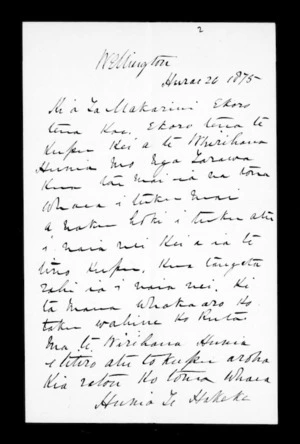 2
Wellington
Hurae 20 1875
Kia Ta Makarini Ekoro
tena Koe, Ekoro tena te
Kupu Kei a te Wirihana
Hunia mo Nga Tarawa
Kua tae mai ia na tona
Whaea i tuku mai
a naku hoki i tuku atu
i naia nei Kei a ia te
Kupu. Kua tangata
rahi ia i naia nei. Ki
ta Maua Whakaaro Ko
taku wahine Ko Ruta
Ma te Wirihana Hunia
e titiro atu to kupu aroha
Kia raton Ko tona Whaea
Hunia Te Hakeke